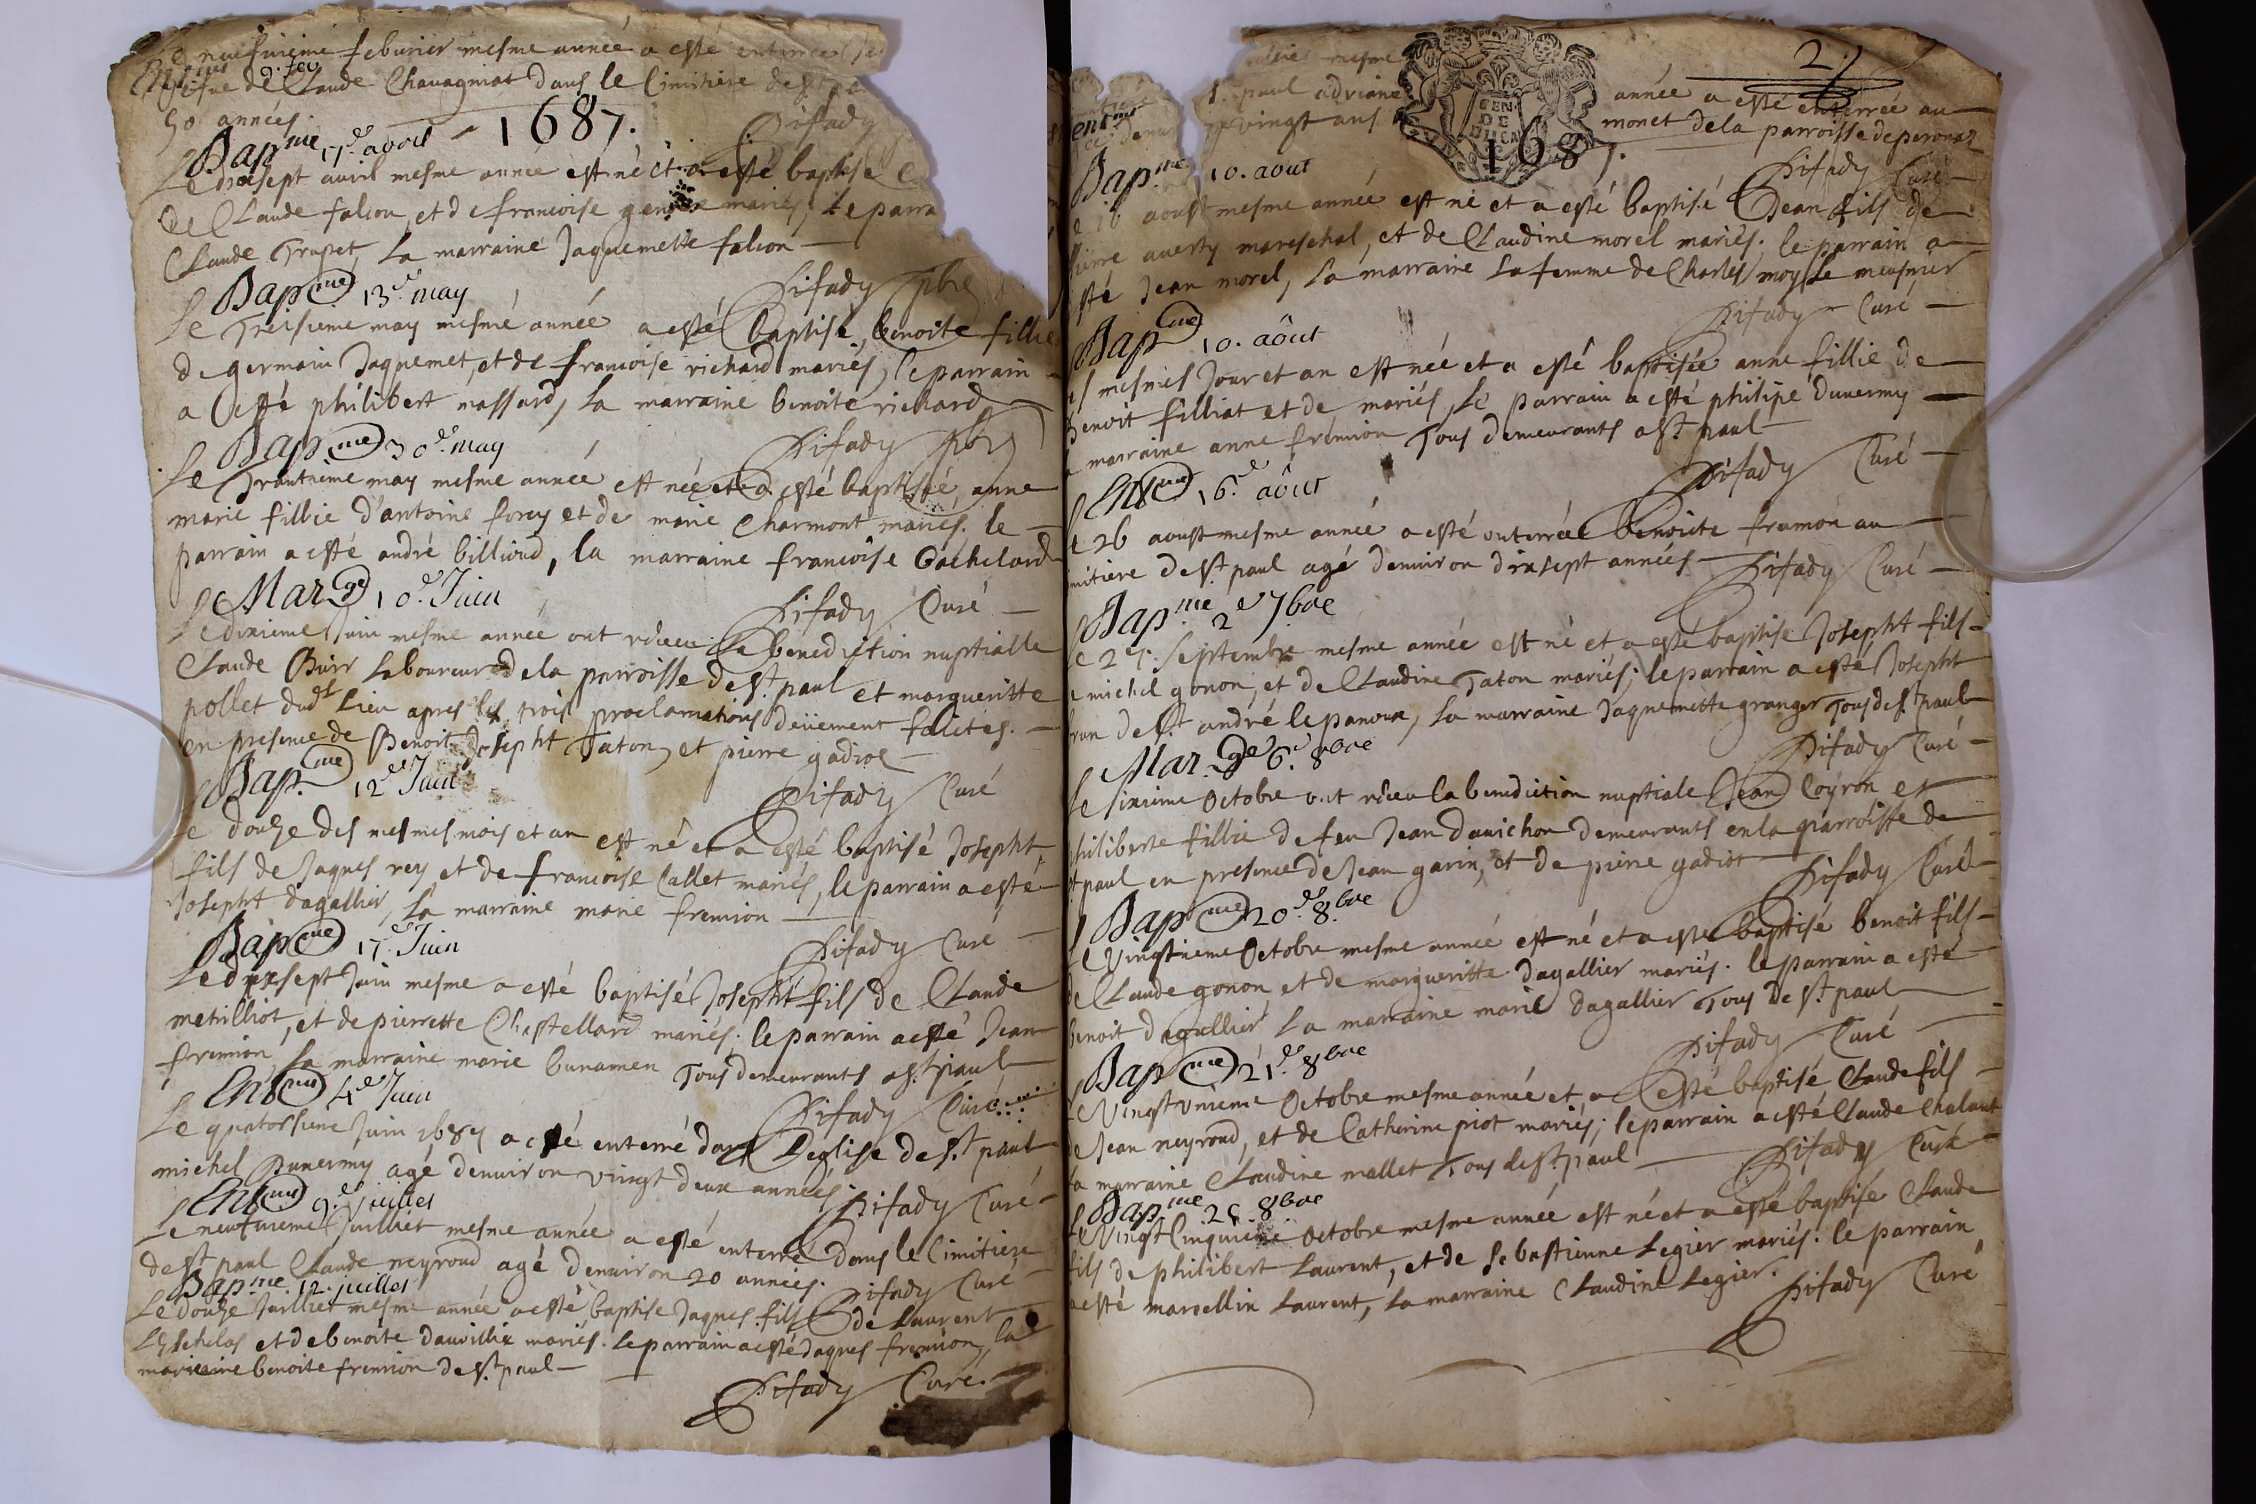 neufvieme febvrier mesme année a esté enterrée
de Claude Chavagniat dans le Cimitiere de St
50 années.
Difady
1687.
Bap.me 17.e avril
Le dixsept avril mesme année est né et a esté baptisé
de Claude falcon, et de francoise mariés, le parra
Claude Trupet, la marraine Jaquemette falcon
Difady pbre
Bapme 13.e may
Le Treisieme may mesme année a esté baptisé, benoite fillie
de germain Jaquemet, et de francoise richard mariés, le parrain
a esté philibert massard, la marraine benoite richard
Difady pbre
Bapme 30.e may
Le Trantieme may mesme année est née et a esté baptisée, anne
marie fillie d'antoine forey et de marie Charmont mariés. le
parrain a esté andré billioud, la marraine francoise Bachelard
Difady Curé
Marge 10.e Juin
Le dixieme Juin mesme année ont receu la benediction nuptialle
Claude Buir laboureur de la parroisse de St. paul et margueritte
pollet dudt lieu apres les trois proclamations deüement faictes.
en presence de Benoit Josepht Taton, et pierre gadiot
Difady Curé
Bap.me 12.e Juin
Le douze des mesmes mois et an est né et a esté baptisé Josepht
fils de Jaques rey et de francoise Callet mariés, le parrain a esté
Josepht dagallier, la marraine marie fremion
Difady Curé
Bapme 17.e Juin
Le dixsept Juin mesme a esté baptisé Josepht fils de Claude
metrilliot, et de pierrette Chastellard mariés; le parrain a esté Jean
fremion, la marraine marie bunamen Tous demeurants a St. paul
Difady Curé
Entme 4.e Juin
Le quatorsieme Juin 1687 a esté enterré dans l'eglise de St. paul
michel Dunermy agé denviron vingt deux années.
Difady Curé
Entme 9.e juillet
Le neufvieme Juilliet mesme année a esté enterré dans le Cimitiere
de St. paul Claude neyroud agé denviron 20 années.
Difady Curé
Bap.me 12. juillet
Le douze Juilliet mesme année a esté baptisé Jaques fils de Laurent
et de benoite dauvillie mariés. le parrain a esté Jaques fremion, la
marraine benoite fremion de St. paul
Difady Curé.
27
mesme année a esté enterrée au
St. paul adriane monet de la parroisse de peronaz
vingt ans
GEN DE
1687.
Difady Curé
Bap.me 10. aout
aoust mesme année est né et a esté baptisé Jean fils de
pierre averty mareschal, et de Claudine morel mariés. le parrain a
esté Jean morel, la marraine la femme de Charles moy le meusnier
Difady Curé
Bapme 10. aôut
mesmes Jour et an est née et a esté baptisée anne fillie de
benoit filliat et de mariés, le parrain a esté philipe Dunermy
marraine anne fremion Tous demeurants a St. paul
Difady Curé
Entme 16.e aôut
Le 26 aoust mesme année a esté enterrée benoicte fremion au
mitiere de St. paul agé denviron dixsept années
Difady Curé
Bap.me 2.e 7bre
Le septembre mesme année est né et a esté baptisé Josepht fils
michel gonon, et de Claudine Taton mariés; le parrain a esté Josepht
de St. andré le panoux, la marraine Jaquemette granger Tous de St. paul
Difady Curé
Mar.ge 6.e 8bre
Le sixieme Octobre ont receu la benediction nuptiale Jean Coyron et
philiberte fillie de feu Jean danichon demeurants en la parroisse de
St. paul en presence de Jean garin, et de pierre gadiot
Difady Curé
Bapme 20.e 8.bre
Le vingtieme Octobre mesme année est né et a esté baptisé benoit fils
de Claude gonon et de margueritte dagallier mariés. le parrain a esté
benoit dagallier la marraine marie dagallier Tous de St. paul
Difady Curé
Bapme 21.e 8bre
Le vingt unieme Octobre mesme année et a esté baptisé Claude fils
de Jean neyroud, et de Catherine piot mariés; le parrain a esté Claude Chalant
la marraine Claudine mallet Tous de St. paul
Difady Curé
Bap.me 25 8bre
Le vingt Cinquieme Octobre mesme année est né et a esté baptisé Claude
fils de philibert Laurent, et de sebastienne Legier mariés. le parrain
a esté marcellin Laurent, la marraine Claudine Legier.
Difady Curé